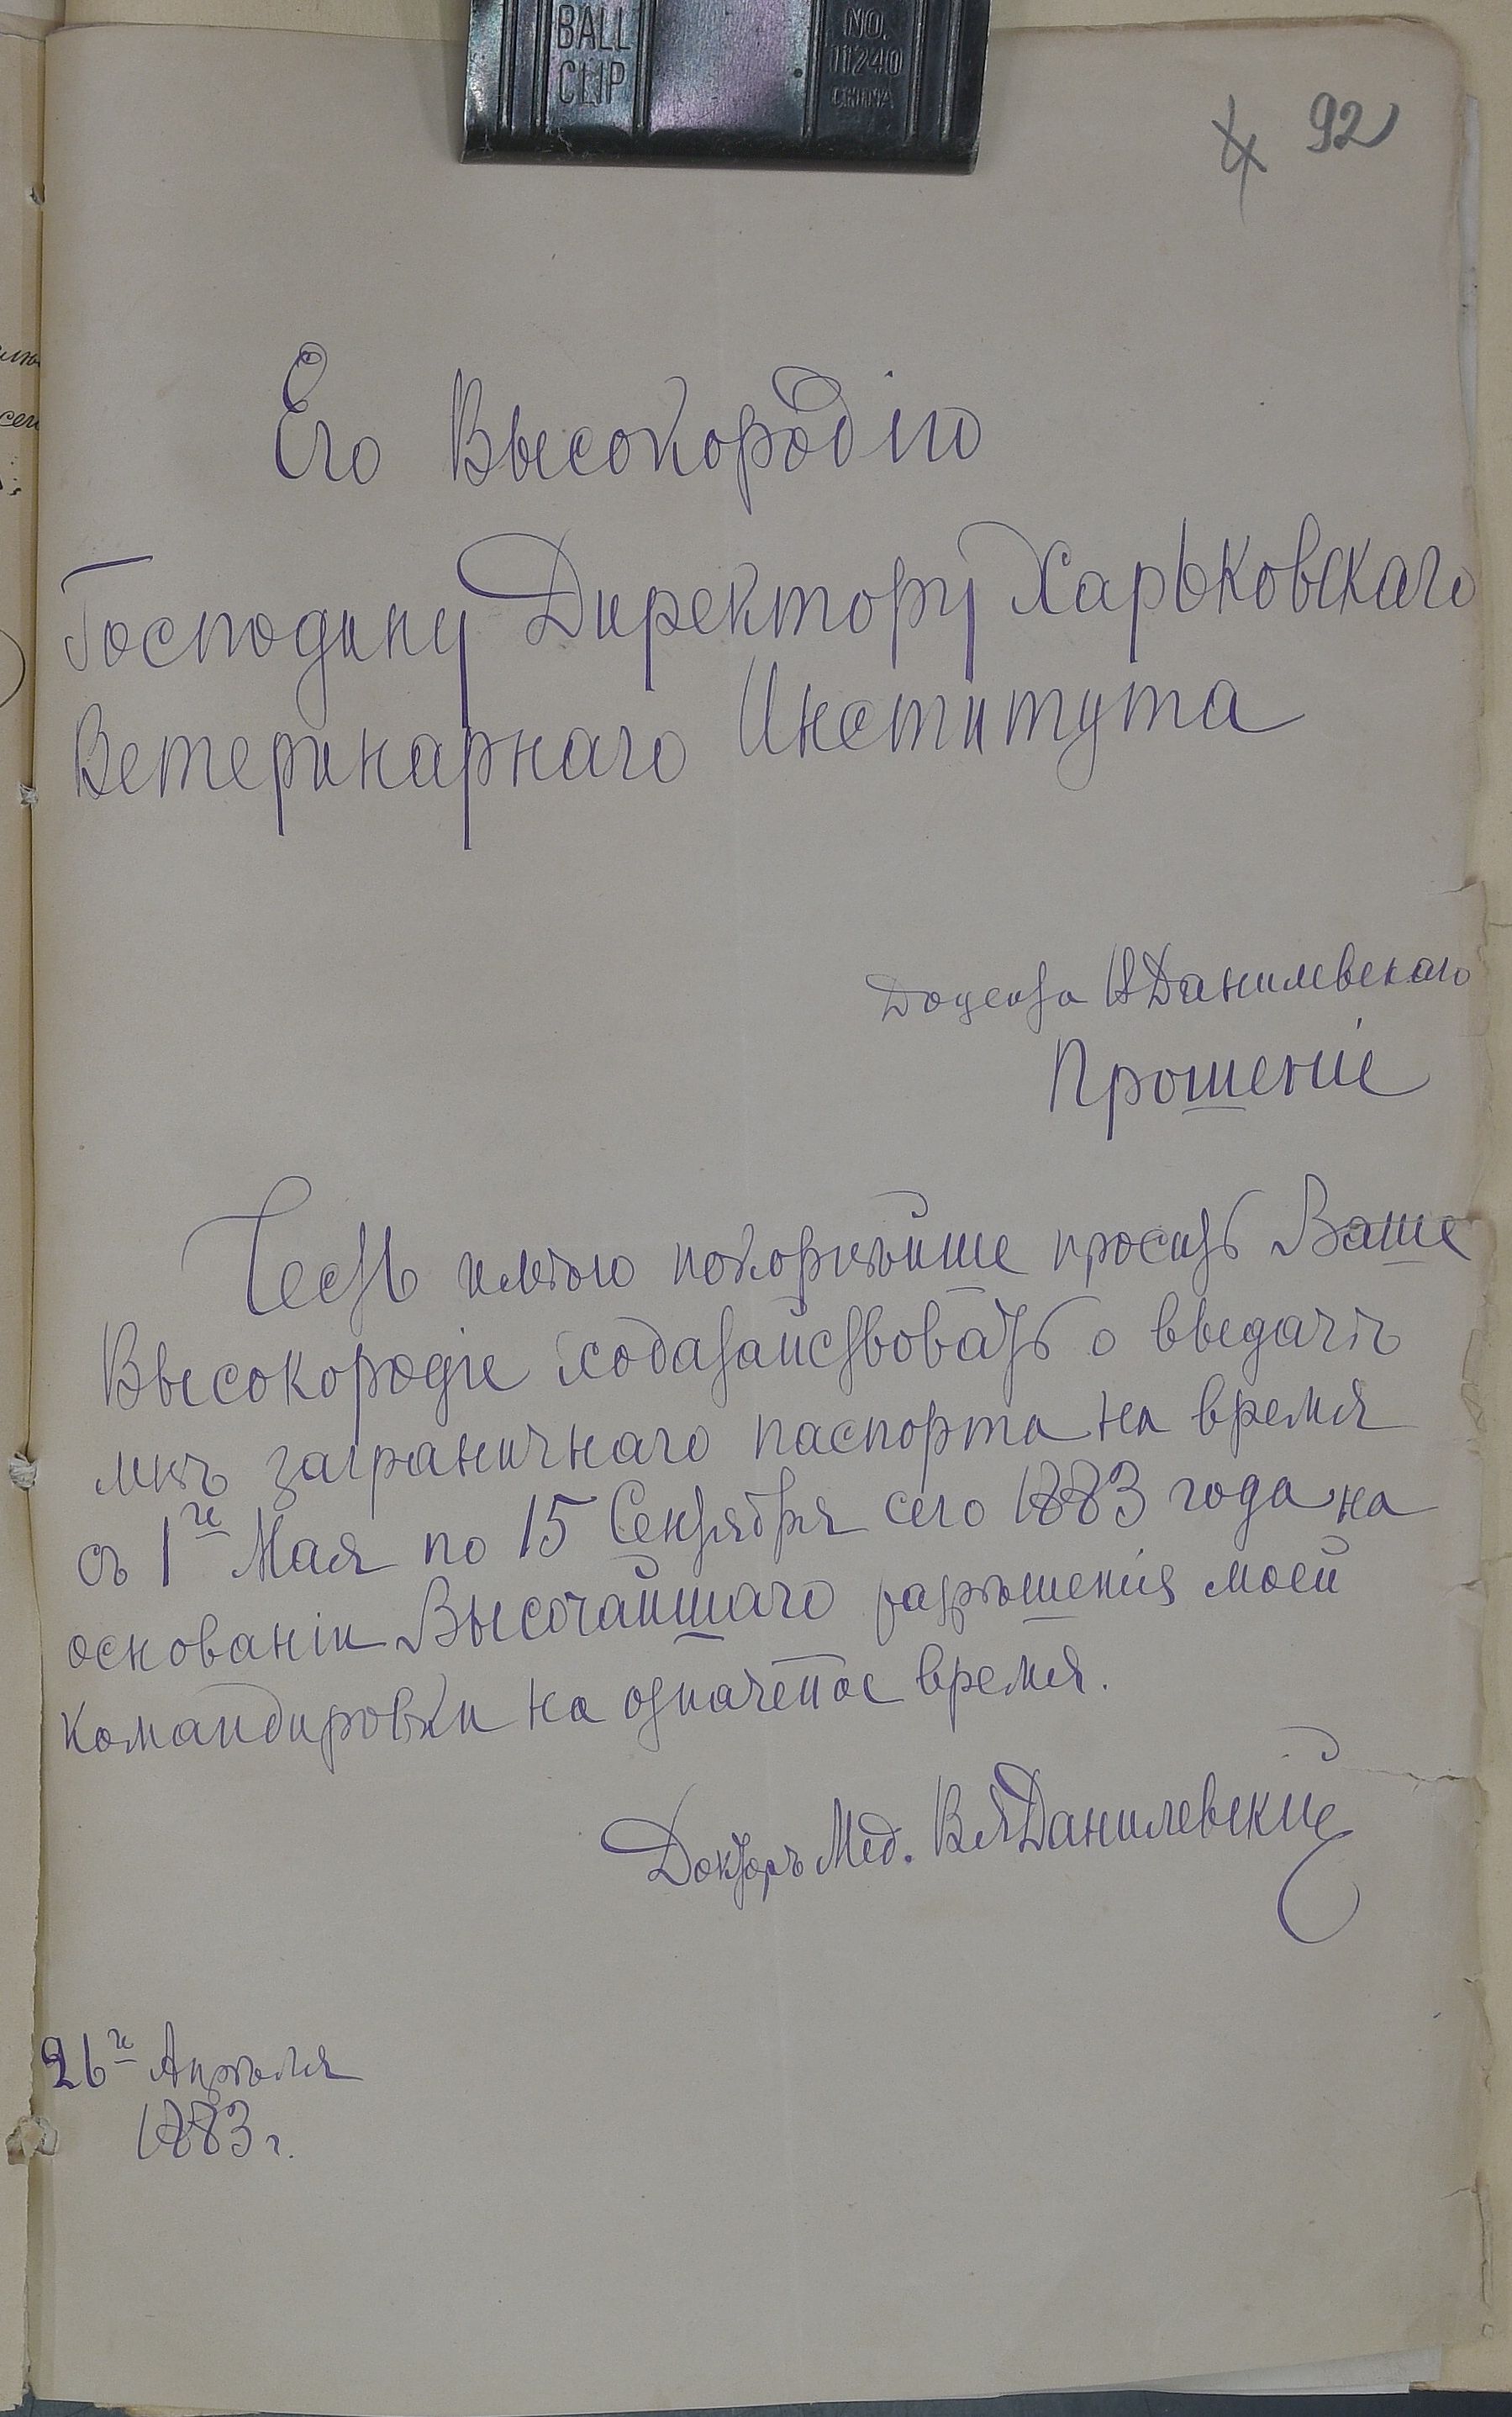 BALL
CLIP
NO.
11240
CHINA
92
Его Высокородію
Господину Директору Харьковскаго
Ветеринарнаго Института
Доцента В Данилевскаго
Прошеніе
Честь имѣю покорнѣйше просить Ваше
Высокородіе ходатайствовать о выдачѣ
мнѣ заграничнаго паспорта на время
съ 1го Мая по 15 Сентября сего 1883 года на
основаніи Высочайшаго разрѣшенія моей
командировки на означеное время.
Докторъ Мед. В Я Данилевскій
26го Апрѣля
1883 г.